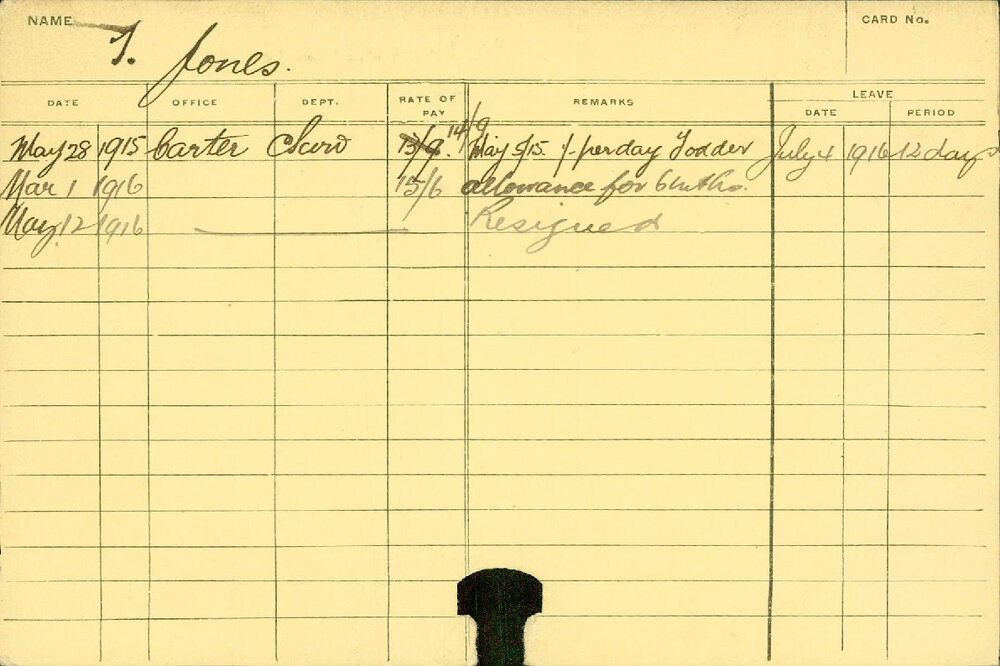 NAME T. Jones. CARD No.
DATE OFFICE DEPT. RATE OF PAY REMARKS LEAVE
DATE PERIOD
May 28 1915 Carter 13/9. 14/9 May 5/15. 1/- per day Fodder July 4 1916 12 days
Mar 1 1916 15/6 allowance for 6 mths.
May 12 1916 Resigned